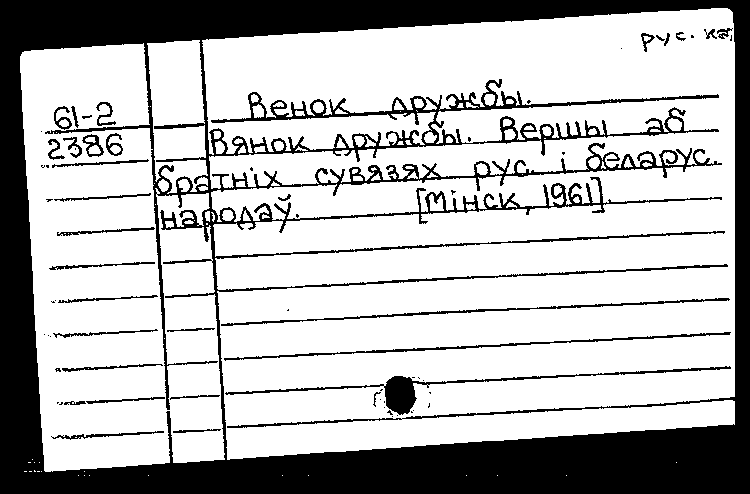 рус. ка
61-2 Венок дружбы.
2386 Вянок дружбы. Вершы аб
братніх сувязях рус. і беларус.
народаў. [Мінск, 1961].